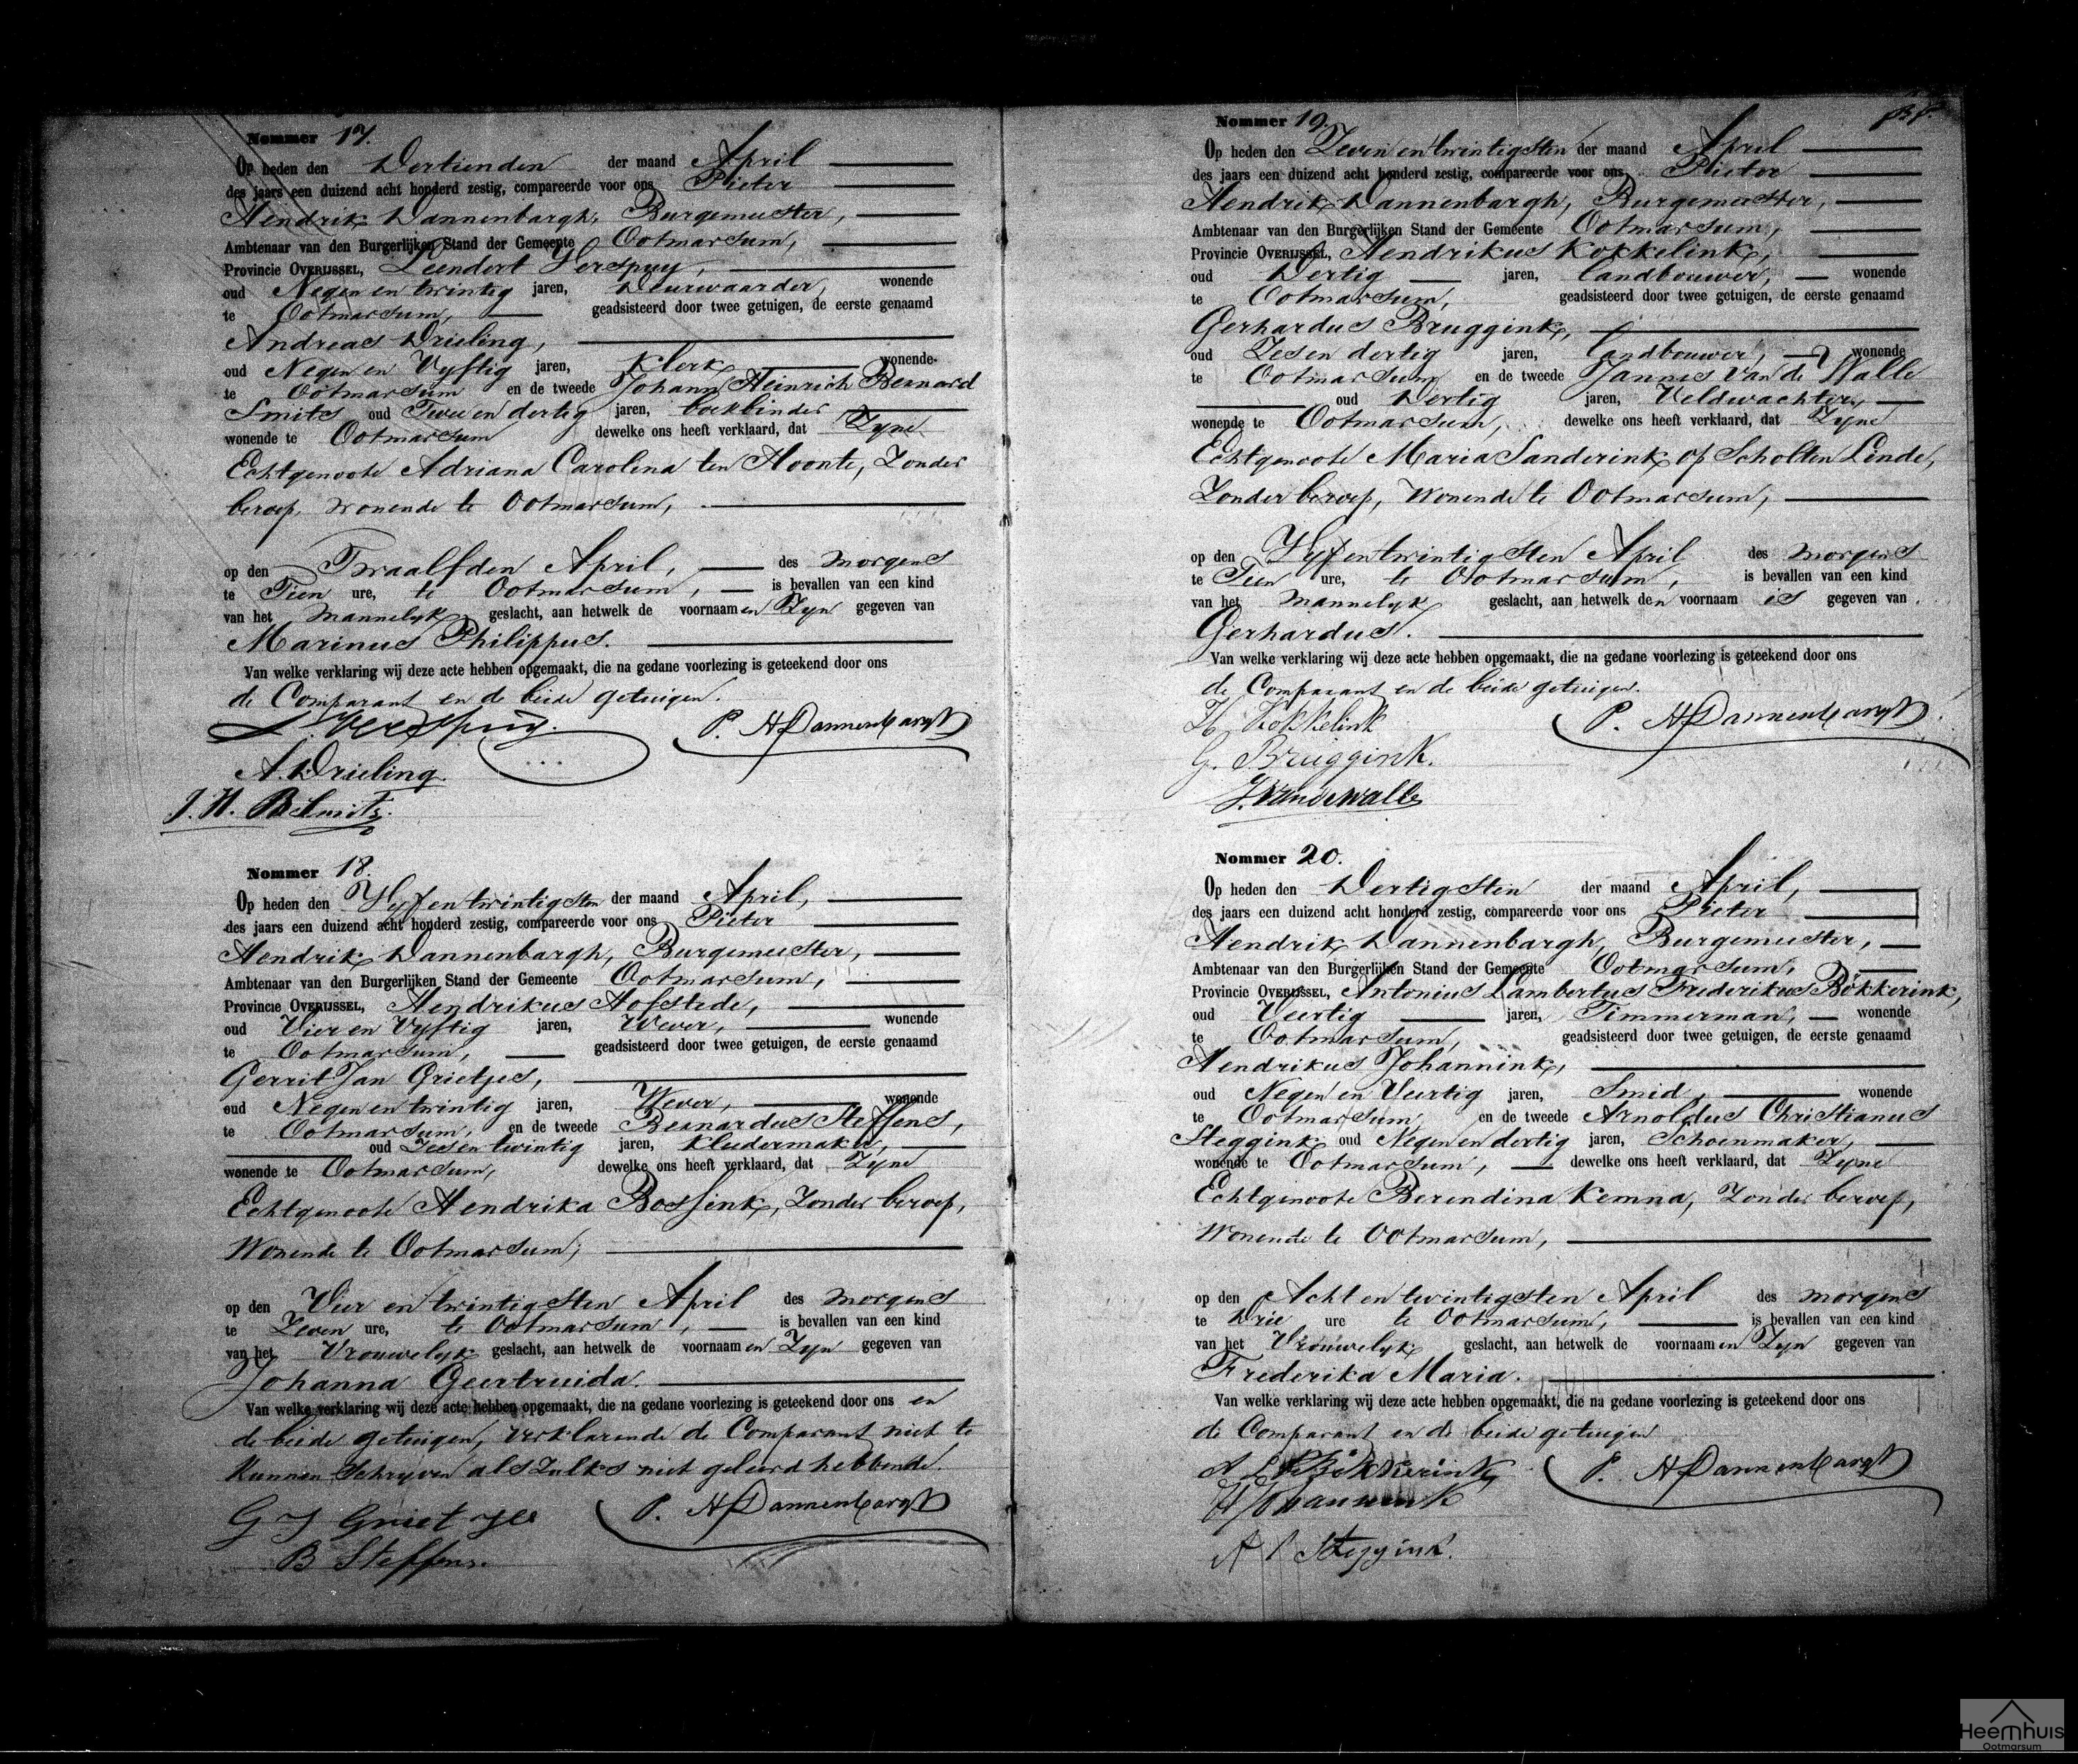 Nommer 17.
Op heden den Dertienden der maand April
des jaars een duizend acht honderd zestig, compareerde voor ons Pieter
Hendrik Dannenbargh, Burgemeester,
Ambtenaar van den Burgerlijken Stand der Gemeente Ootmarsum,
Provincie Overijssel, Leendert Verspuy,
oud Negen en twintig jaren, Deurwaarder, wonende
te Ootmarsum, geadsisteerd door twee getuigen, de eerste genaamd
Andreas Drieling,
oud Negen en Vyftig jaren, Klerk wonende
te Ootmarsum en de tweede Johann Heinrich Bernard
Smits oud Twee en dertig jaren, boekbinder
wonende te Ootmarsum dewelke ons heeft verklaard, dat Zyne
Echtgenoote Adriana Carolina ten Hoonte, Zonder
beroep, wonende te Ootmarsum,
op den Twaalfden April, des morgens
te Tien ure, te Ootmarsum, is bevallen van een kind
van het Mannelyk geslacht, aan hetwelk de voornaamen Zyn gegeven van
Marinus Philippus.
Van welke verklaring wij deze acte hebben opgemaakt, die na gedane voorlezing is geteekend door ons
de Comparant en de beide getuigen.
L. Verspuy. P. H Dannenbargh
A. Drieling.
J. H. B. Smits.
Nommer 18.
Op heden den Vyf en twintigsten der maand April,
des jaars een duizend acht honderd zestig, compareerde voor ons Pieter
Hendrik Dannenbargh, Burgemeester,
Ambtenaar van den Burgerlijken Stand der Gemeente Ootmarsum,
Provincie Overijssel, Hendrikus Hofstede,
oud Vier en Vyftig jaren, Wever, wonende
te Ootmarsum, geadsisteerd door twee getuigen, de eerste genaamd
Gerrit Jan Grietjes,
oud Negen en twintig jaren, Wever, wonende
te Ootmarsum, en de tweede Bernardus Steffens,
oud Zes en twintig jaren, Kleedermaker,
wonende te Ootmarsum, dewelke ons heeft verklaard, dat Zyne
Echtgenoote Hendrika Bossink, Zonder beroep,
Wonende te Ootmarsum,
op den Vier en twintigsten April des morgens
te Zeven ure, te Ootmarsum, is bevallen van een kind
van het Vrouwelyk geslacht, aan hetwelk de voornaamen Zyn gegeven van
Johanna Geertruida.
Van welke verklaring wij deze acte hebben opgemaakt, die na gedane voorlezing is geteekend door ons en
de beide getuigen, verklarende de Comparant niet te
Kunnen Schryven als zulks niet geleerd hebbende.
G J Grietjes P. H Dannenbargh
B Steffens.
Nommer 19.
Op heden den Zeven en twintigsten der maand April
des jaars een duizend acht honderd zestig, compareerde voor ons Pieter
Hendrik Dannenbargh, Burgemeester,
Ambtenaar van den Burgerlijken Stand der Gemeente Ootmarsum,
Provincie Overijssel, Hendrikus Kokkelink,
oud Dertig jaren, Landbouwer, wonende
te Ootmarsum, geadsisteerd door twee getuigen, de eerste genaamd
Gerhardus Bruggink,
oud Zes en dertig jaren, Landbouwer, wonende
te Ootmarsum en de tweede Jannes Van de Walle
oud Dertig jaren, Veldwachter,
wonende te Ootmarsum, dewelke ons heeft verklaard, dat Zyne
Echtgenoote Maria Sanderink op Scholten Linde,
Zonder beroep, Wonende te Ootmarsum,
op den Vyf en twintigsten April des morgens
te Tien ure, te Ootmarsum, is bevallen van een kind
van het Mannelyk geslacht, aan hetwelk den voornaam is gegeven van
Gerhardus.
Van welke verklaring wij deze acte hebben opgemaakt, die na gedane voorlezing is geteekend door ons
de Comparant en de beide getuigen.
H Kokkelink P. H Dannenbargh
G. Bruggink.
J. Vandewalle
Nommer 20.
Op heden den Dertigsten der maand April,
des jaars een duizend acht honderd zestig, compareerde voor ons Pieter
Hendrik Dannenbargh, Burgemeester,
Ambtenaar van den Burgerlijken Stand der Gemeente Ootmarsum,
Provincie Overijssel, Antonius Lambertus Frederikus Bökkerink,
oud Veertig jaren, Timmerman, wonende
te Ootmarsum, geadsisteerd door twee getuigen, de eerste genaamd
Hendrikus Johannink,
oud Negen en Veertig jaren, Smid, wonende
te Ootmarsum, en de tweede Arnoldus Christianus
Steggink oud Negen en dertig jaren, Schoenmaker,
wonende te Ootmarsum, dewelke ons heeft verklaard, dat Zyne
Echtgenoote Berendina Kemna, Zonder beroep,
Wonende te Ootmarsum,
op den Acht en twintigsten April des morgens
te Drie ure te Ootmarsum, is bevallen van een kind
van het Vrouwelyk geslacht, aan hetwelk de voornaamen Zyn gegeven van
Frederika Maria.
Van welke verklaring wij deze acte hebben opgemaakt, die na gedane voorlezing is geteekend door ons
de Comparant en de beide getuigen
A L F Bökkerink P. H Dannenbargh
H Johannink
A C Steggink.
Heemhuis
Ootmarsum